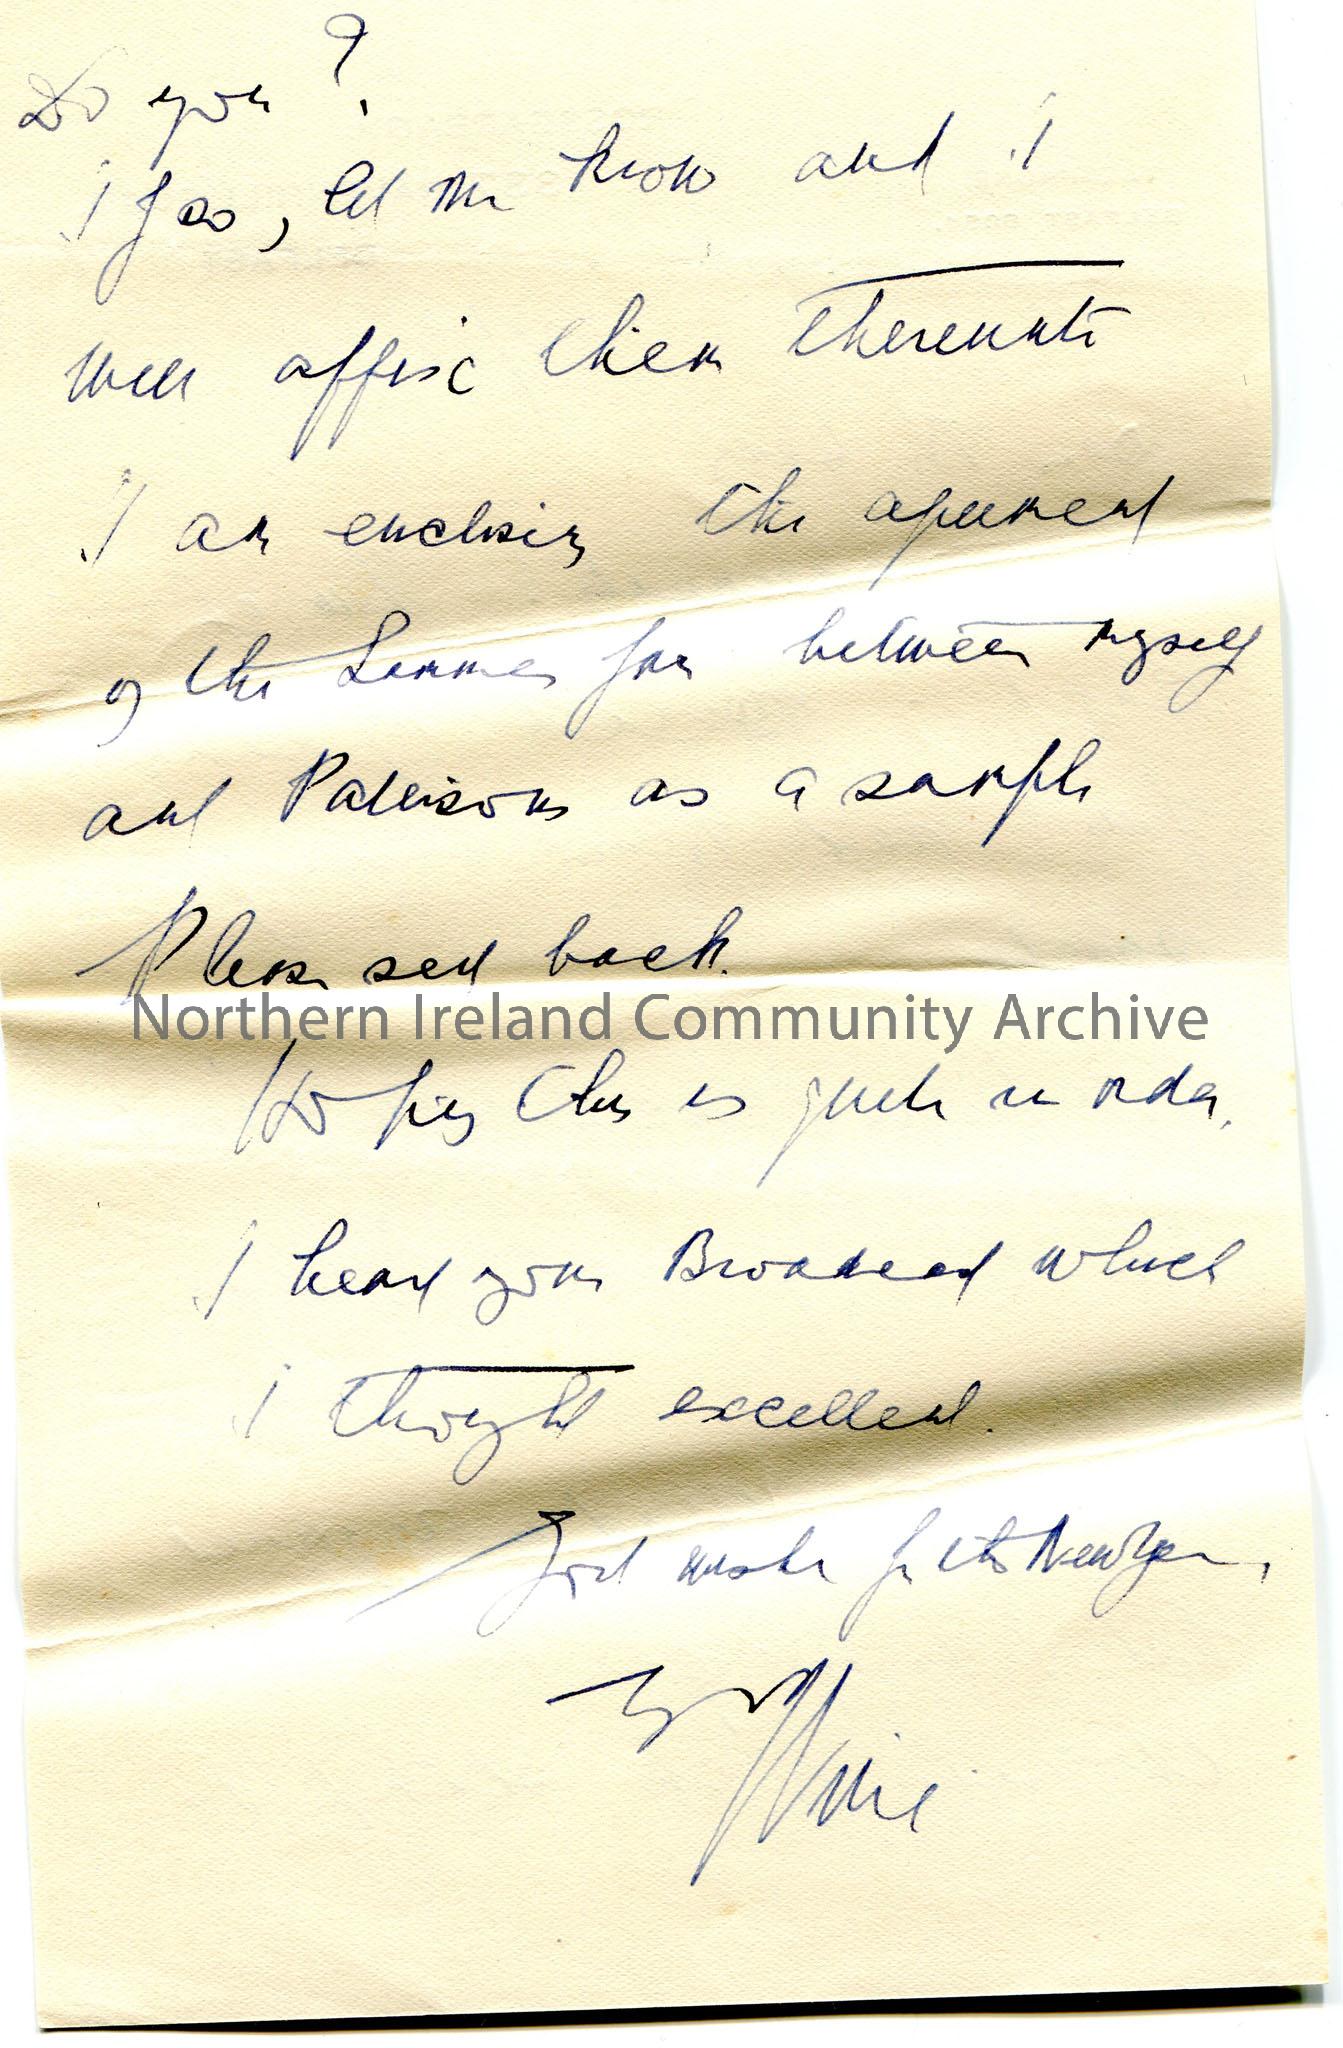 Do you?
If so, let me know and I
will affix them thereunto
I am enclosing the agreement
of the Lammas fair between myself
and Pattersons as a sample
Please send back.
Northern Ireland Community Archive
Hoping this is quite in order.
I heard your Broadcast which
I thought excellent.
Good wishes for the New Year,